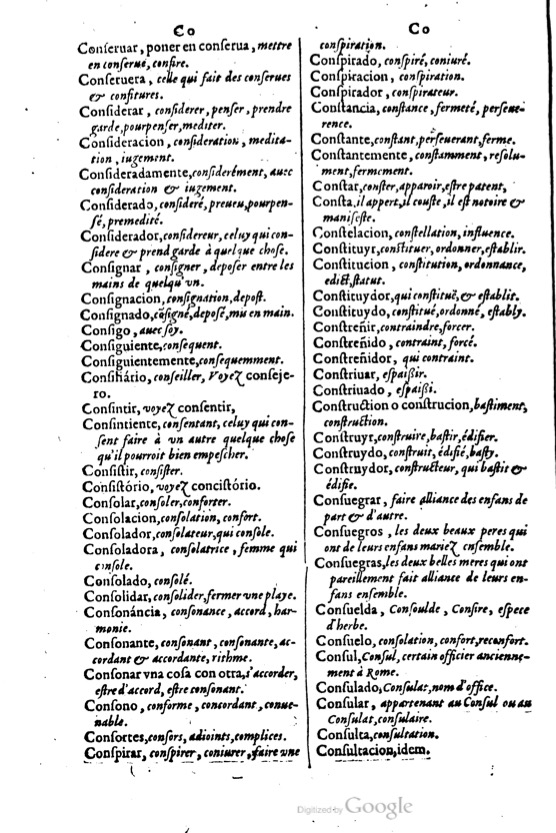 Co
Conſeruar, poner en conſerua, mettre
en conſerue, confire.
Conſeruera, celle qui fait des conſerues
& confitures.
Conſiderar, conſiderer, penſer, prendre
garde, pourpenſer, mediter.
Conſideracion, conſideration, medita-
tion, iugement.
Conſideradamente, conſiderément, auec
conſideration & iugement.
Conſiderado, conſideré, preueu, pourpen-
ſé, premedité.
Conſiderador, conſidereur, celuy qui con-
ſidere & prend garde à quelque choſe.
Conſignar, conſigner, depoſer entre les
mains de quelqu'vn.
Conſignacion, conſignation, depoſt.
Conſignado, cõſigné, depoſé, mis en main.
Conſigo, auec ſoy.
Conſiguiente, conſequent.
Conſiguientemente, conſequemment.
Conſiliário, conſeiller, Voyez conſeje-
ro.
Conſintir, voyez conſentir,
Conſintiente, conſentant, celuy qui con-
ſent faire à vn autre quelque choſe
qu'il pourroit bien empeſcher.
Conſiſtir, conſiſter.
Conſiſtório, voyez conciſtório.
Conſolar, conſoler, conforter.
Conſolacion, conſolation, confort.
Conſolador, conſolateur, qui conſole.
Conſoladora, conſolatrice, femme qui
conſole.
Conſolado, conſolé.
Conſolidar, conſolider, fermer vne playe.
Conſonáncia, conſonance, accord, har-
monie.
Conſonante, conſonant, conſonante, ac-
cordant & accordante, rithme.
Conſonar vna coſa con otra, s'accorder,
eſtre d'accord, eſtre conſonant.
Conſono, conforme, concordant, conue-
nable.
Conſortes, conſors, adioints, complices.
Conſpirar, conſpirer, coniurer, faire vne
Co
conſpiration.
Conſpirado, conſpiré, coniuré.
Conſpiracion, conſpiration.
Conſpirador, conſpirateur.
Conſtancia, conſtance, fermeté, perſeue-
rence.
Conſtante, conſtant, perſeuerant, ferme.
Conſtantemente, conſtamment, reſolu-
ment, fermement.
Conſtar, conſter, apparoir, eſtre patent,
Conſta, il appert, il couſte, il eſt notoire &
manifeſte.
Conſtelacion, conſtellation, influence.
Conſtituyr, conſtituer, ordonner, eſtablir.
Conſtitucion, conſtitution, ordonnance,
edict, ſtatut.
Conſtituydor, qui conſtitue, & eſtablit.
Conſtituydo, conſtitué, ordonné, eſtably.
Conſtreñir, contraindre, forcer.
Conſtreñido, contraint, forcé.
Conſtreñidor, qui contraint.
Conſtriuar, eſpaiſſir.
Conſtriuado, eſpaiſſi.
Conſtruction o conſtrucion, baſtiment,
conſtruction.
Conſtruyr, conſtruire, baſtir, édifier.
Conſtruydo, conſtruit, édifié, baſty.
Conſtruydor, conſtructeur, qui baſtit &
édifie.
Conſuegrar, faire alliance des enfans de
part & d'autre.
Conſuegros, les deux beaux peres qui
ont de leurs enfans mariez enſemble.
Conſuegras, les deux belles meres qui ont
pareillement fait alliance de leurs en-
fans enſemble.
Conſuelda, Conſoulde, Conſire, eſpece
d'herbe.
Conſuelo, conſolation, confort, reconfort.
Conſul, Conſul, certain officier ancienne-
ment à Rome.
Conſulado, Conſulat, nom d'office.
Conſular, appartenant au Conſul ou au
Conſulat, conſulaire.
Conſulta, conſultation.
Conſultacion, idem.
Digitized by Google